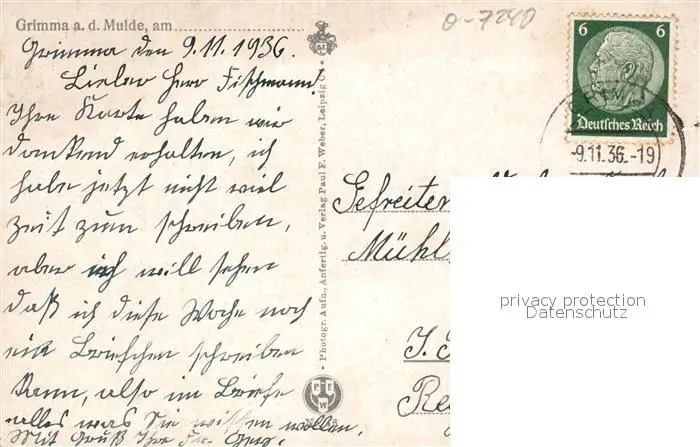 Grimma a. d. Mulde, am
Grimma den 9.11.1936.
Lieber Herr Fischmann!
Ihre Karte haben wir
dankend erhalten, ich
habe jetzt nicht viel
Zeit zum schreiben,
aber ich will sehen
daß ich diese Woche noch
ein Briefchen schreiben
kann, also im Briefe
alles was Sie wissen wollen.
Mit Gruß Ihre
Photogr. Aufn., Anfertig. u. Verlag Paul F. Weber, Leipzig
P F W
o-7240
6 6
Deutsches Reich
-9.11.36.-19
Gefreiter
Mühl
I.
Re
privacy protection
Datenschutz